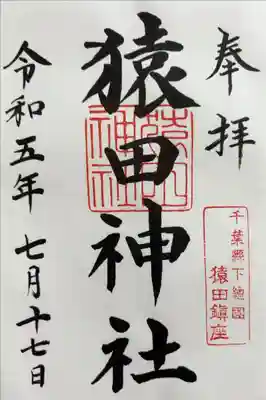 奉拝
千葉縣下總國
猿田鎮座
猿田神社
令和五年 七月十七日